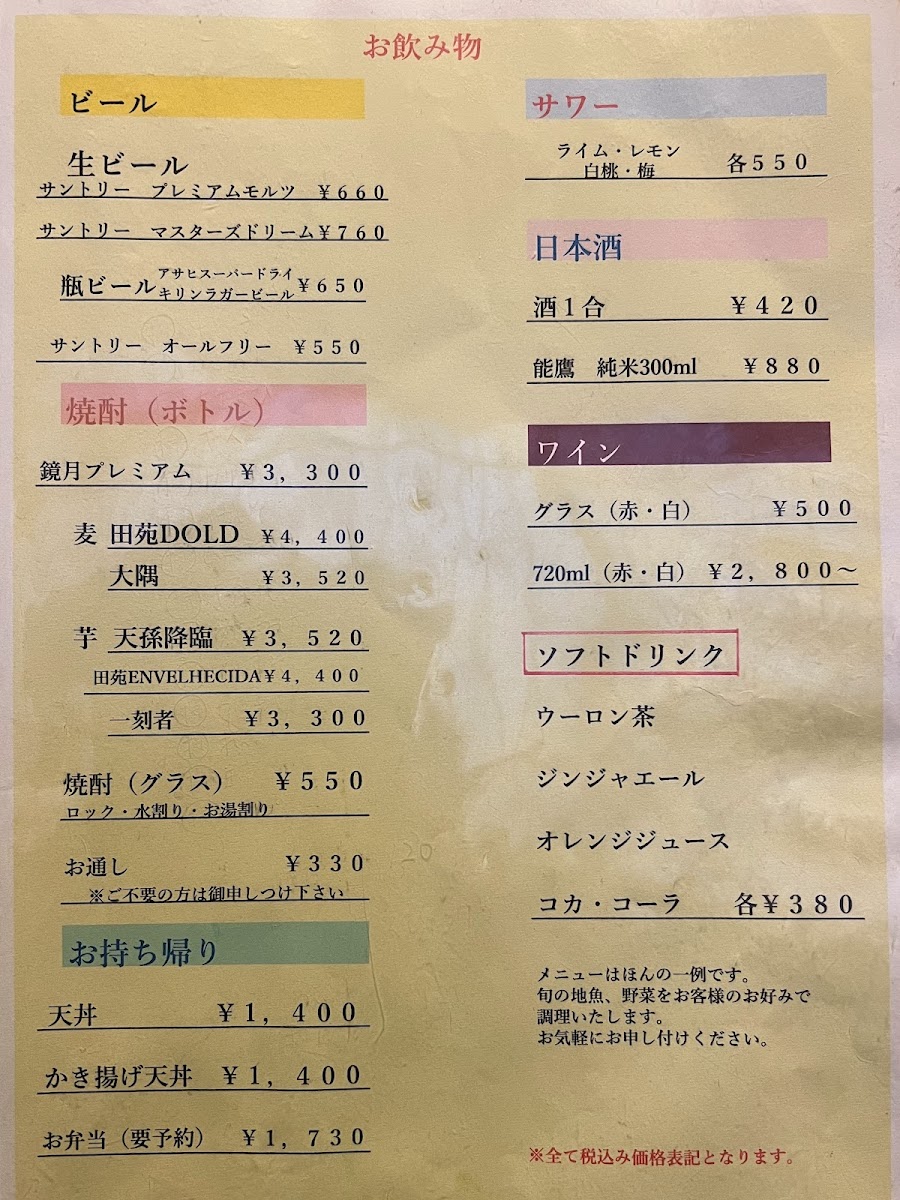 お飲み物
ビール
生ビール
サントリー　プレミアムモルツ　￥６６０
サントリー　マスターズドリーム￥７６０
瓶ビール アサヒスーパードライ ￥６５０
キリンラガービール
サントリー　オールフリー　￥５５０
焼酎（ボトル）
鏡月プレミアム　￥３，３００
麦　田苑DOLD　￥４，４００
大隅　￥３，５２０
芋　天孫降臨　￥３，５２０
田苑ENVELHECIDA￥４，４００
一刻者　￥３，３００
焼酎（グラス）　￥５５０
ロック・水割り・お湯割り
お通し　￥３３０
※ご不要の方は御申しつけ下さい
お持ち帰り
天丼　￥１，４００
かき揚げ天丼　￥１，４００
お弁当（要予約）　￥１，７３０
サワー
ライム・レモン
白桃・梅　各５５０
日本酒
酒１合　￥４２０
能鷹　純米300ml　￥８８０
ワイン
グラス（赤・白）　￥５００
720ml（赤・白）￥２，８００～
ソフトドリンク
ウーロン茶
ジンジャエール
オレンジジュース
コカ・コーラ　各￥３８０
メニューはほんの一例です。
旬の地魚、野菜をお客様のお好みで
調理いたします。
お気軽にお申し付けください。
※全て税込み価格表記となります。